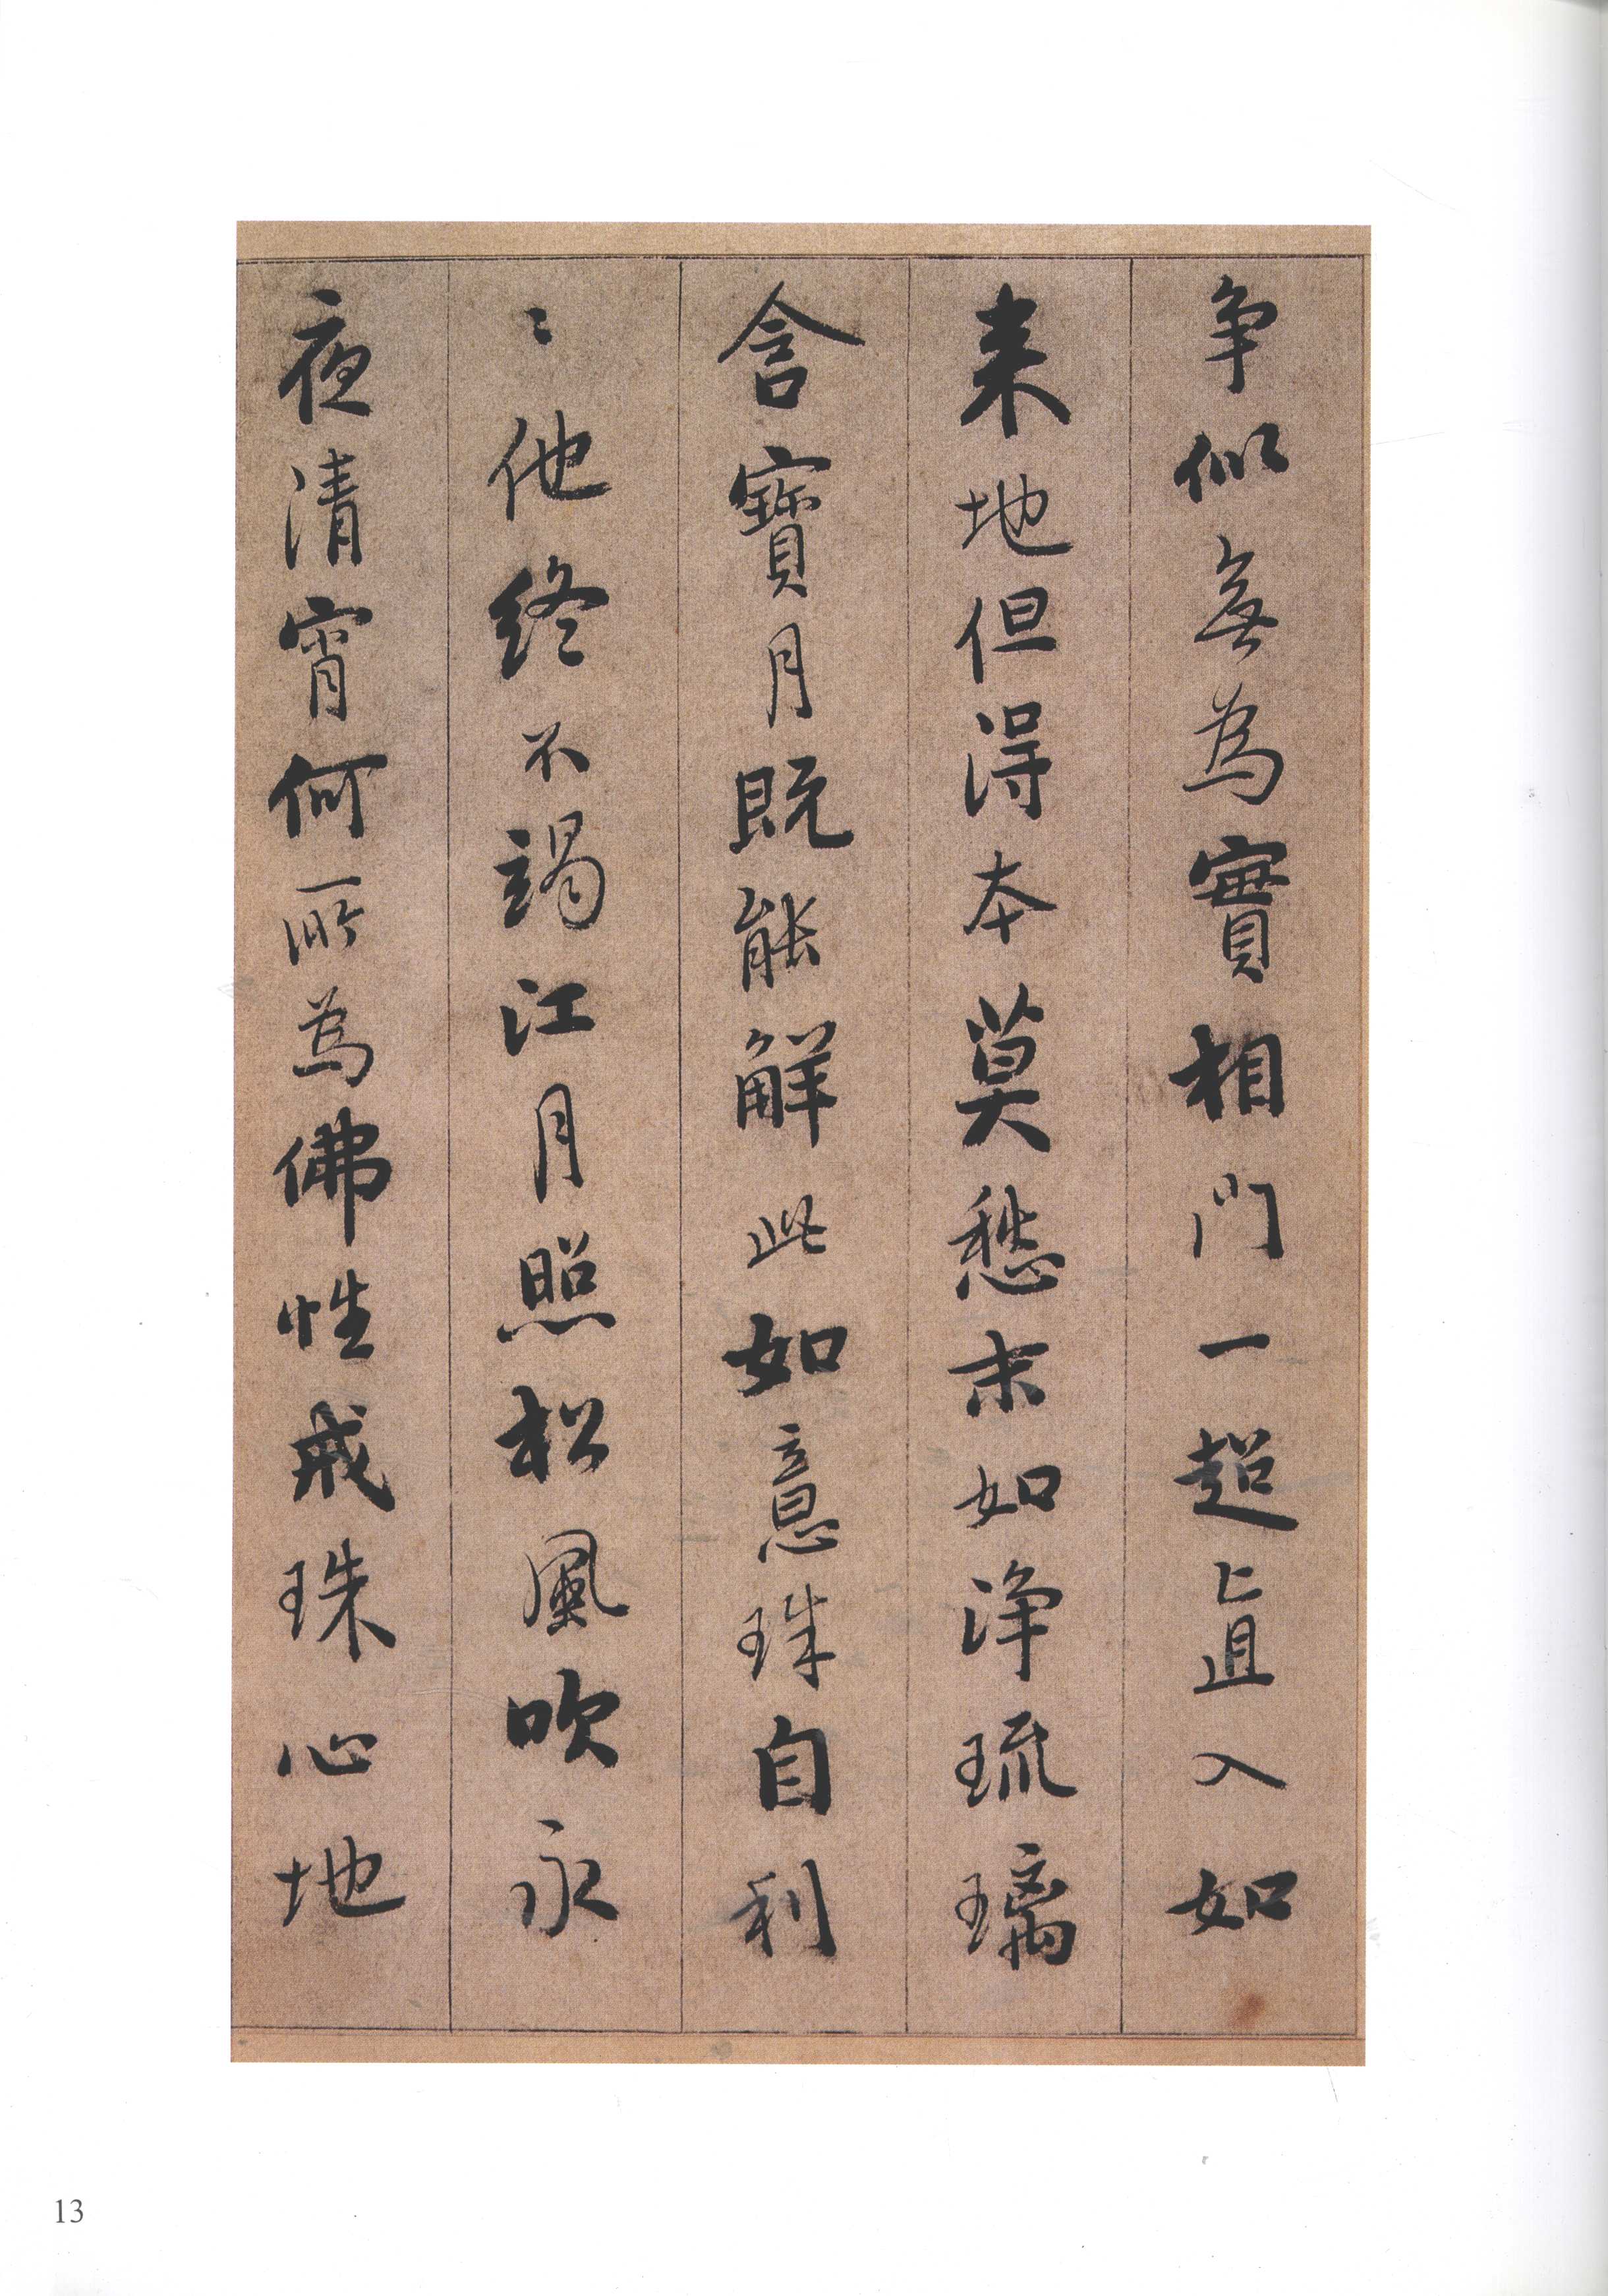 争似無為實相門一超直入如
来地但得本莫愁末如浄琉璃
含寶月既能解此如意珠自利
〻他終不竭江月照松風吹永
夜清宵何所為佛性戒珠心地
13